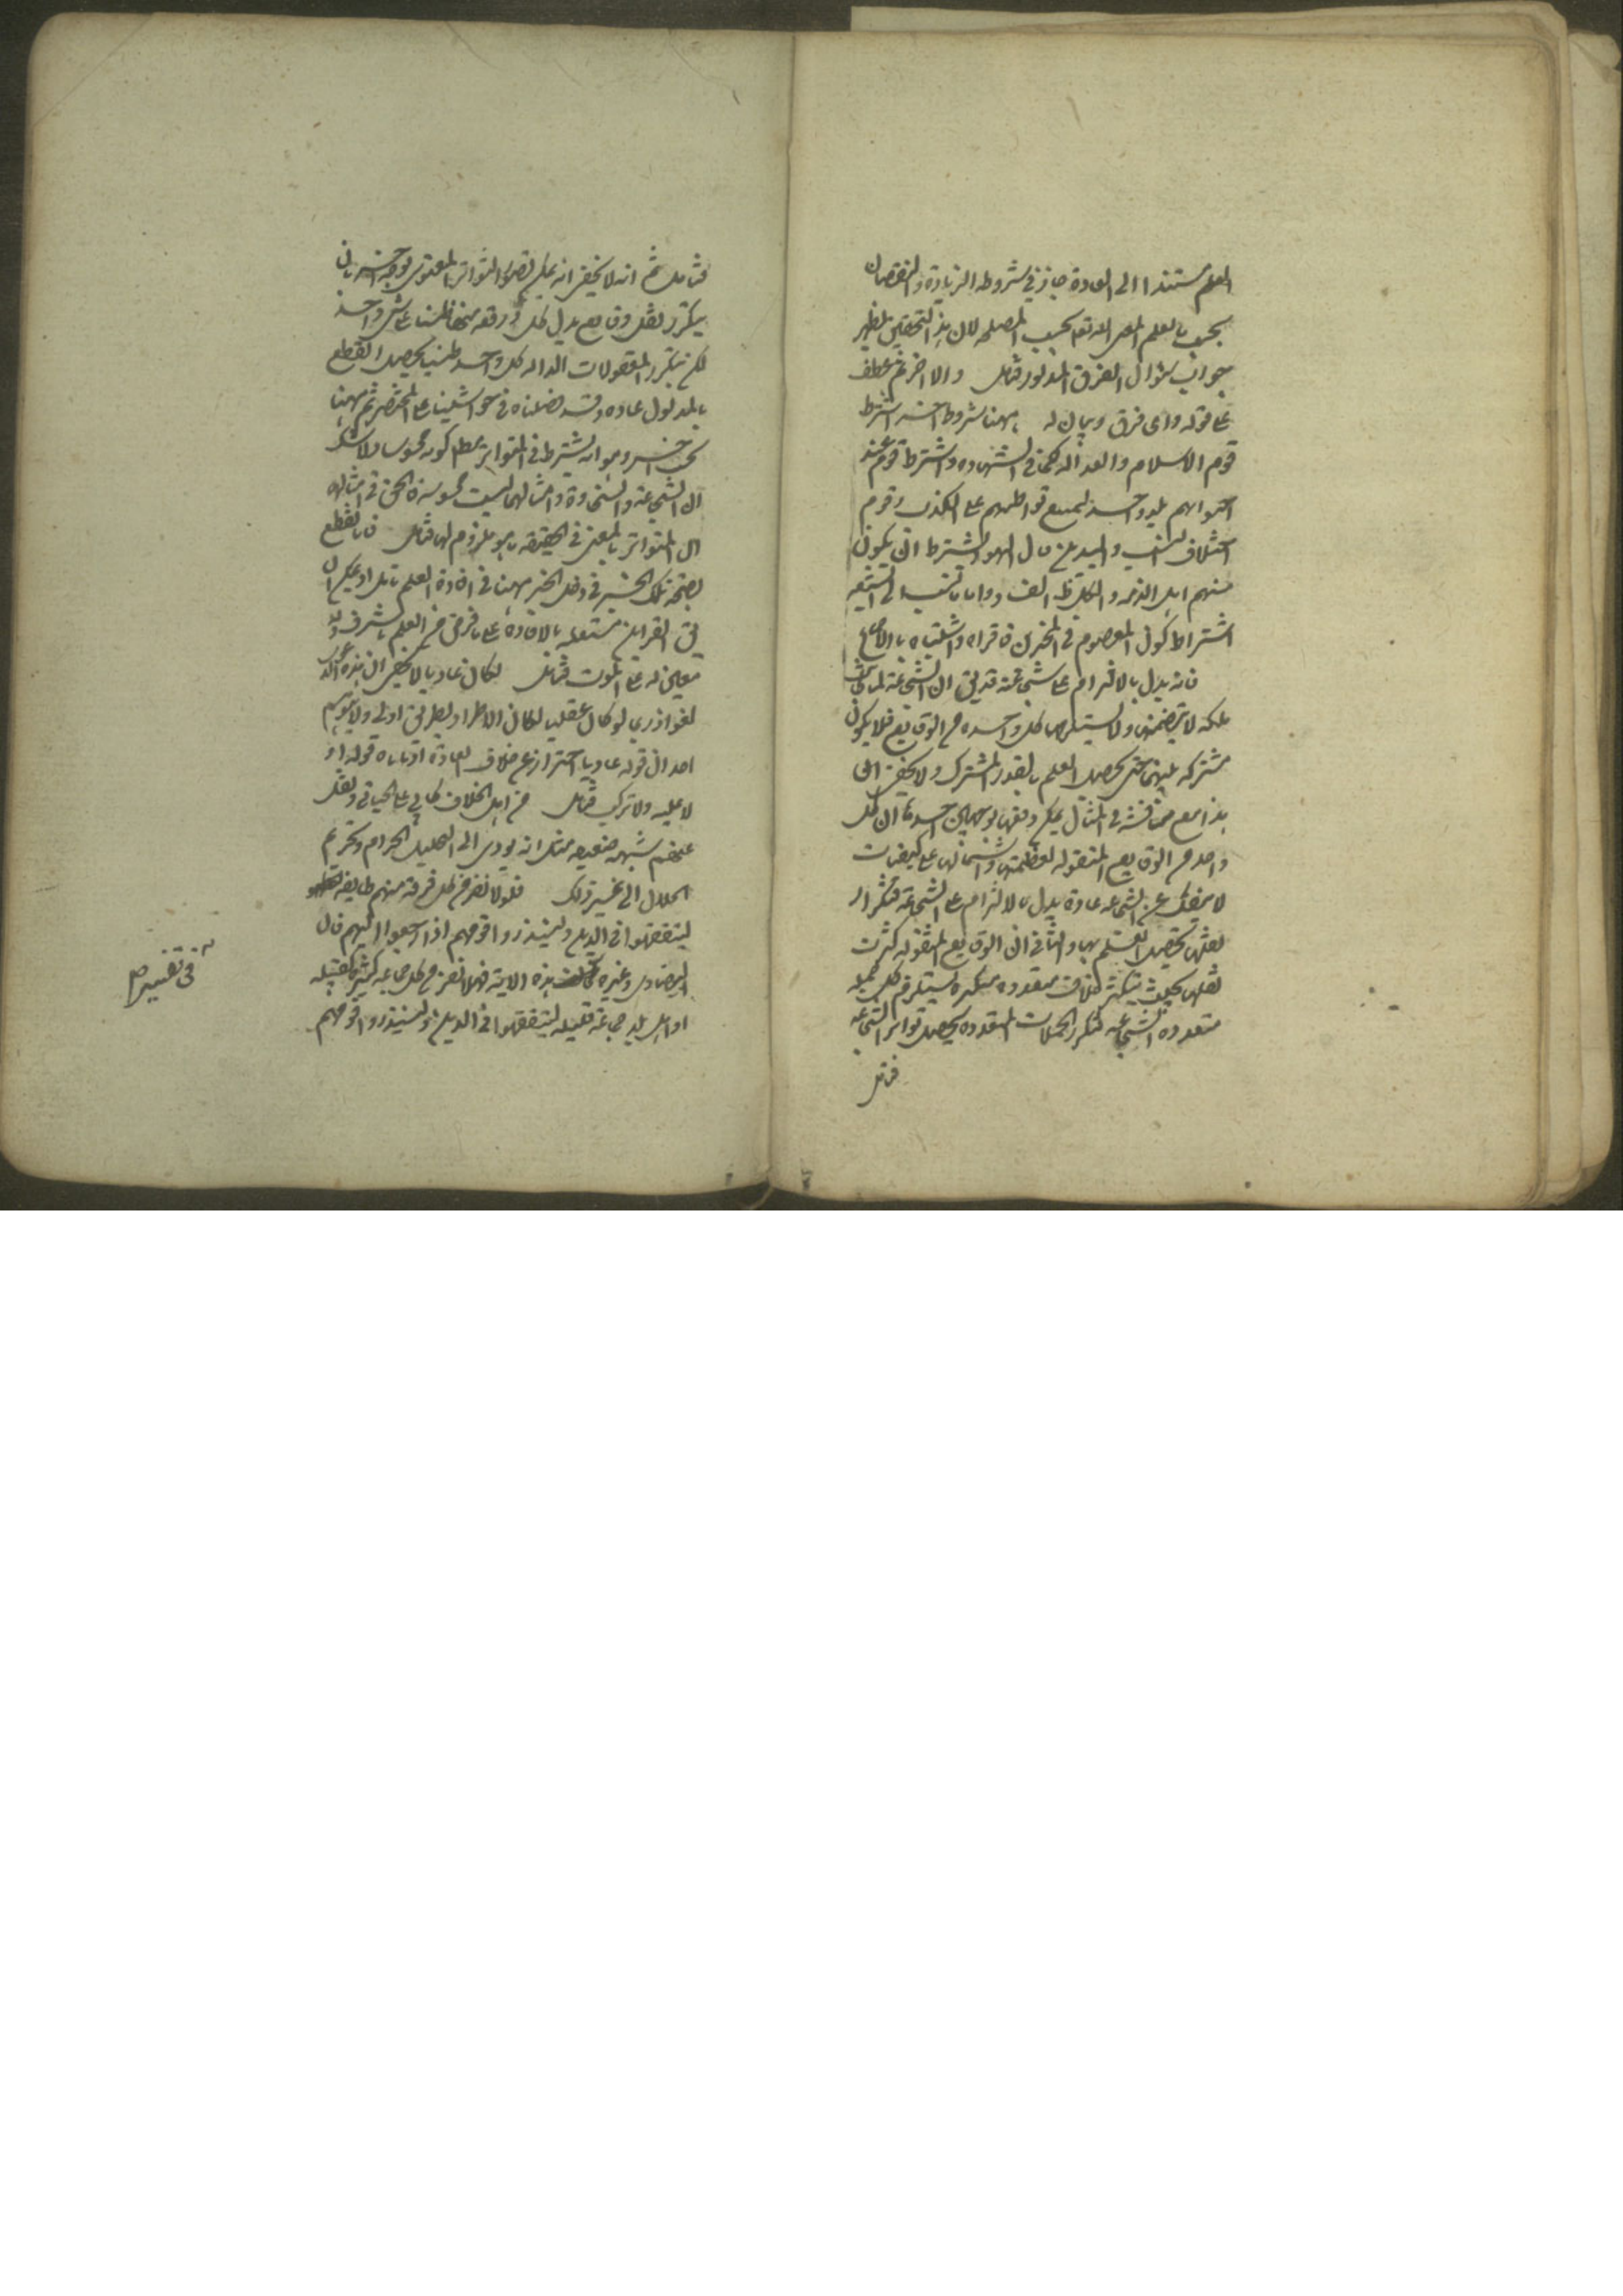 العلم مستندا الى العادة جاز في شروطه الزيادة والنقصان
بحسب العلم الله تعالى بحسب المصلحة لان هذا التحقيق يظهر
جواب سؤال الفرق المذكور فتامل والاخر عطف
على قوله واى فرق وبيان له ههنا شروط اخر اشترط
قوم الاسلام والعدالة كما في الشهادة واشترط قوم عدم
احتوائهم بلد واحد ليمتنع تواطئهم على الكذب وقوم
اختلاف النسب والدين قال اليهود يشترط ان يكون
منهم اهل الذمة والكل ظ الفساد واما ما نسب الى الشيعة
اشتراط كون المعصوم في المخبرين فافتراء واشتباه بالاجماع
فانه يدل بالالتزام على شجاعته قد يق ان الشجاعة لما كانت
ملكة لا يتضمنها ولا يستلزمها كل واحد من الوقايع فلا يكون
مشتركة بينهما حتى يحصل العلم بالقدر المشترك ولا يخفى ان
هذا مع مناقشة في المثال يمكن دفعها بوجهين احدهما ان كل
واحد من الوقايع المنقولة لعظمتها واشتمالها على كيفيات
لا ينفك عن الشجاعة عادة يدل بالالتزام على الشجاعة فتكرار
نقلها يحصل العلم بها والثاني ان الوقايع المنقولة كثرت
نقلها بحيث متعددة متكثرة يستلزم كل جملة
متعددة الشجاعة فتكرر الجملات المتعددة يحصل تواتر الشجاعة
فتامل
فتامل ثم انه لا يخفى انه يمكن تصوير التواتر المعنوى بوجه اخر بان
يتكرر نقل وقايع يدل كل واقعة منها ظنا على شيء واحد
لكن بتكرر المنقولات الدالة كل واحد ظنيا يحصل القطع
بالمدلول عادة وقد فصلناه في حواشينا على المختصر ثم ههنا
بحث اخر وهو انه يشترط في المتواتر مطلقا كونه محسوسا ولا شك
ان الشجاعة والسخاوة وامثالهما ليست محسوسة فالحق في امثاله
ان المتواتر بالمعنى في الحقيقة ما هو ملزوم لها فتامل فالقطع
بصحة تلك الخبر في دخل الخبر ههنا في افادة العلم تامل او يمكن ان
يق القراين مستقلة بالافادة على ما فرض من العلم باشراف ولد
معين له على الموت فتامل لكان عاديا لا يخفى ان هذه
لغو اذ ربما لو كان عقليا لكان الاطراد بطريق اولى ولا يتوهم
احد ان قوله عاديا احتراز عن خلاف العادة اذ ياباه قوله اذ
لا علية ولا ترتب فتامل من اهل الخلاف كابي على الجبائي ونقل
عنهم شبهة ضعيفة مثل انه يودى الى تحليل الحرام وتحريم
الحلال الى غير ذلك فلولا نفر من كل فرقة منهم طايفة
ليتفقهوا في الدين ولينذروا قومهم اذا رجعوا اليهم قال
البيضاوى وغيره هذه الاية فهلا نفر من كل جماعة كثيرة كقبيلة
او اهل بلد جماعة قليلة ليتفقهوا في الدين ولينذروا قومهم
في تفسير